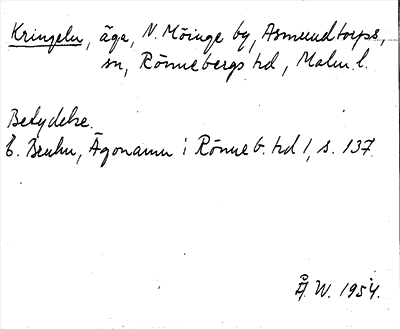 Kringeln, äga, N. Möinge by, Asmundtorps,
sn, Rönnebergs hd, Malm. l.
Betydelse.
E. Bruhn, Ägonamn i Rönneb. hd 1, s. 137.
Å. W. 1954.